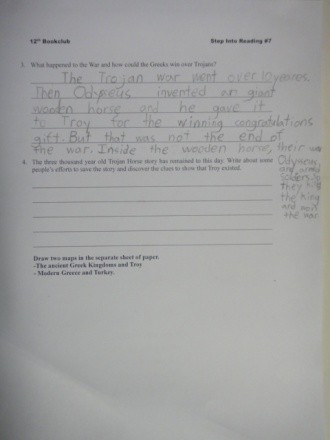 12th Bookclub Step Into Reading #7
3. What happened to the War and how could the Greeks win over Trojans?
The Trojan war went over 10 years.
Then Odyseus invented an giant
wooden horse and he gave it
to Troy for the winning congratulations
gift. But that was not the end of
the war. Inside the wooden horse, their was
Odyseus
and
solders. So
they kill
the King
and won
the war.
4. The three thousand year old Trojan Horse story has remained to this day. Write about some
people's efforts to save the story and discover the clues to show that Troy existed.
Draw two maps in the separate sheet of paper.
-The ancient Greek Kingdoms and Troy
- Modern Greece and Turkey.